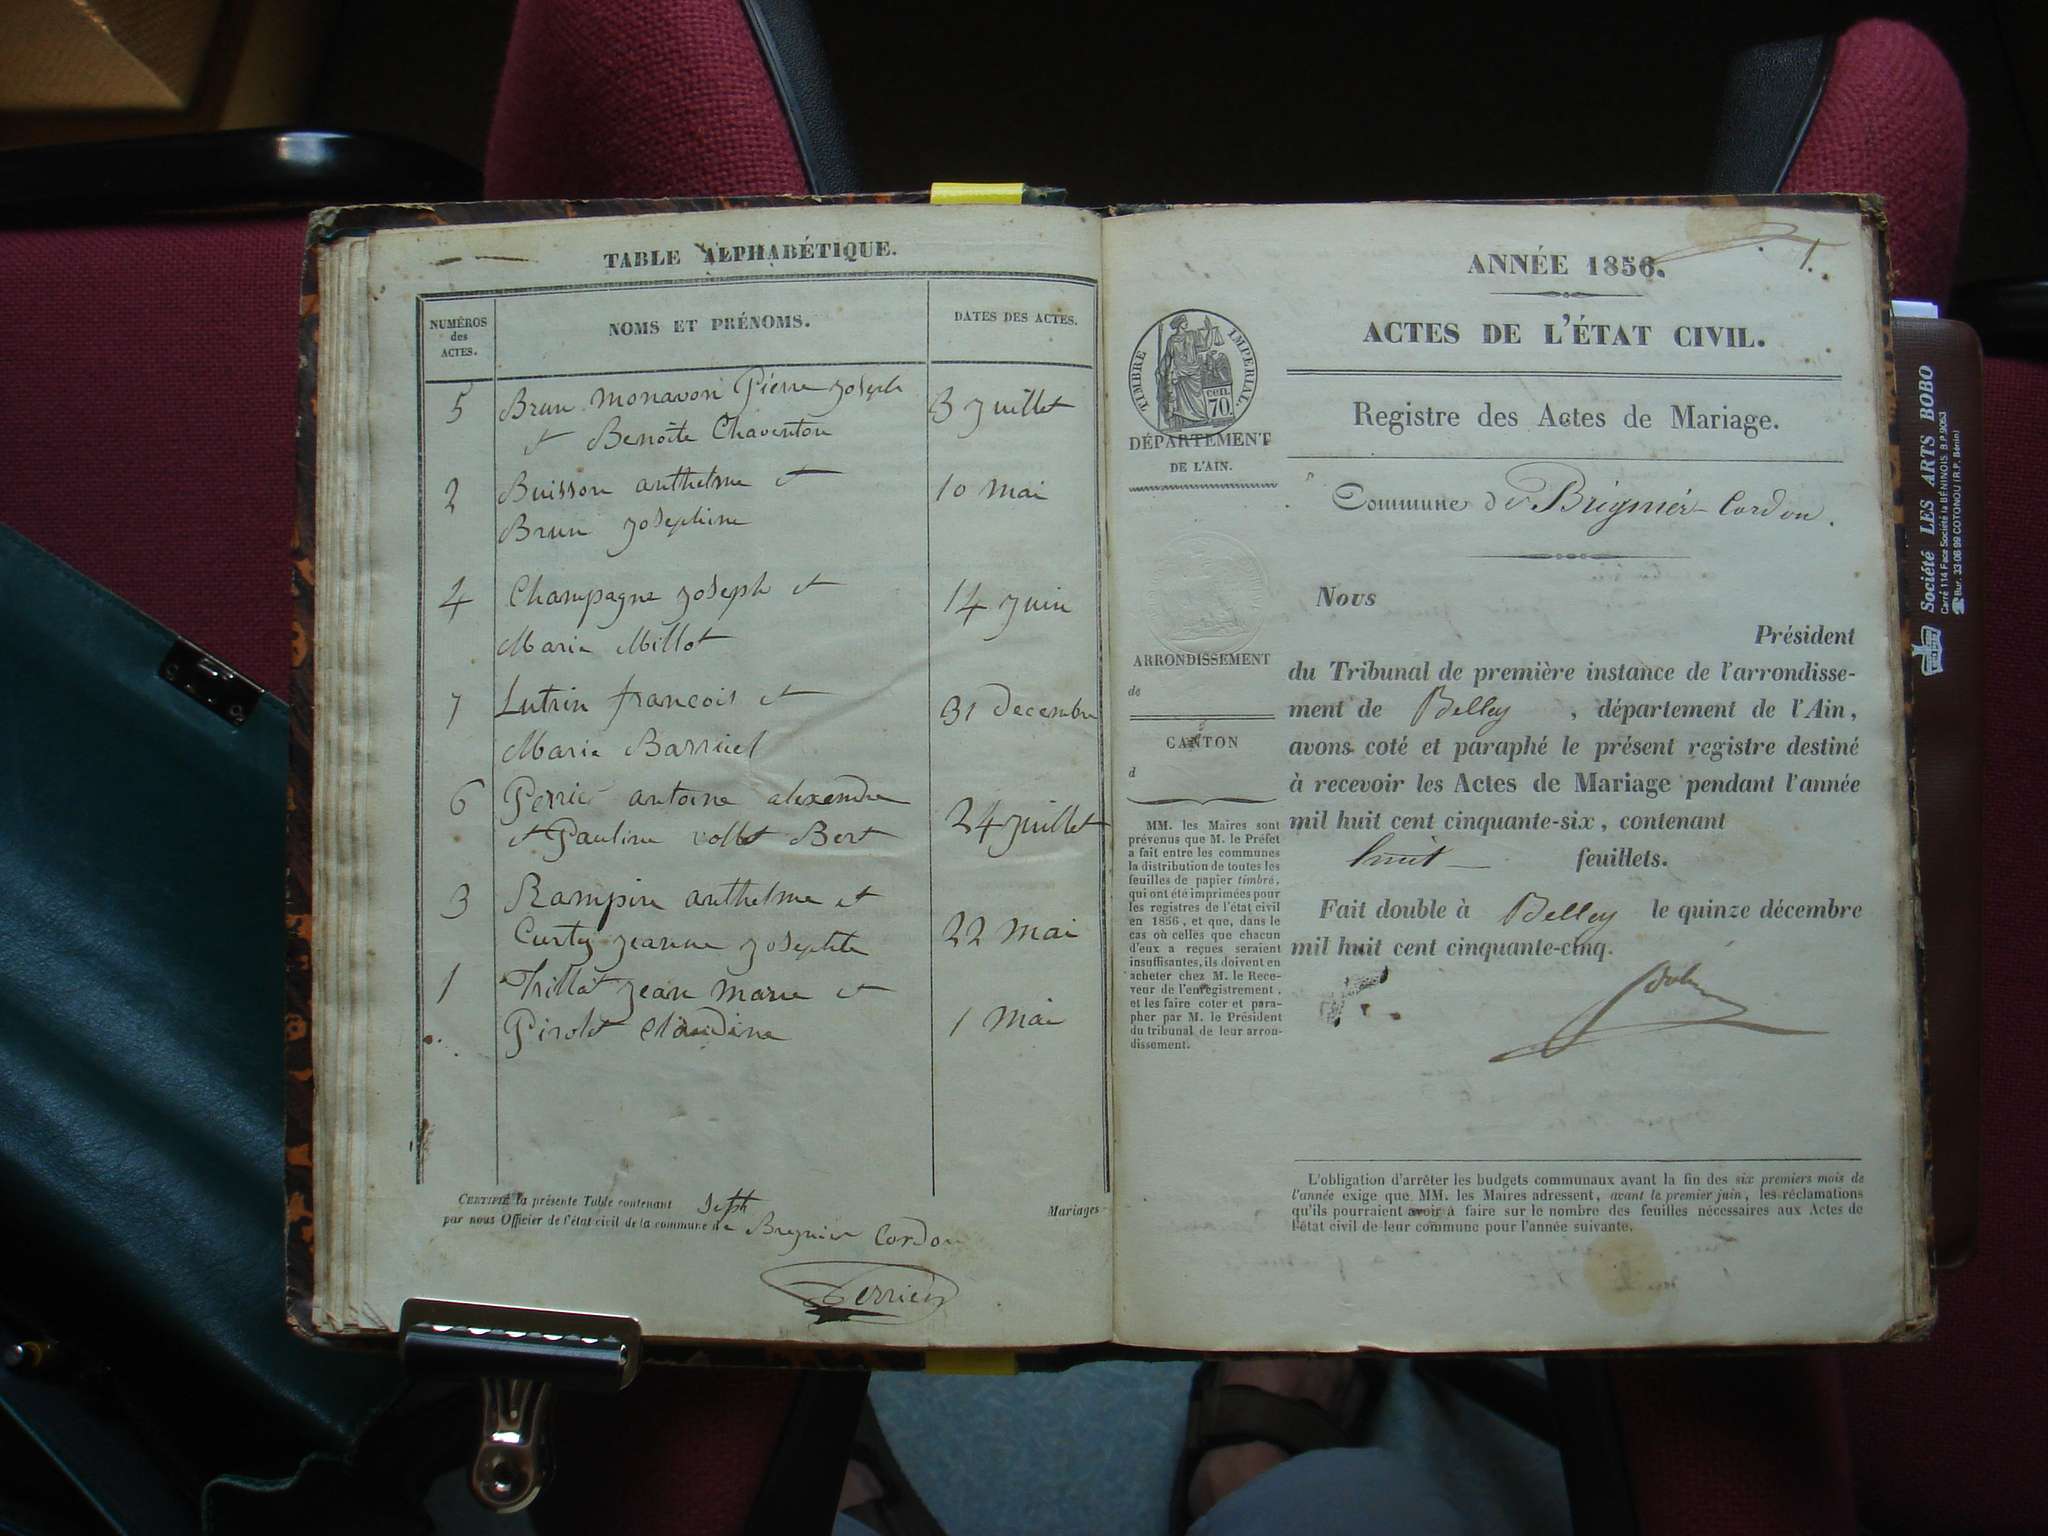 TABLE ALPHABÉTIQUE.
NUMÉROS
des
ACTES.
NOMS ET PRÉNOMS.
DATES DES ACTES.
5 Brun Monavon Pierre Joseph 3 Juillet
et Benoite Chaventon
2 Buisson anthelme et 10 Mai
Brun Josephine
4 Champagne Joseph et 14 Juin
Marie Millot
7 Lutrin francois et 31 Decembre
Marie Barruel
6 Perrier antoine alexendre
et Pauline vollet Bert 24 Juillet
3 Rampin anthelme et
Curty Jeanne Josephte 22 Mai
1 Trillat Jean Marie et
Pirolet Claudine 1 Mai
CERTIFIÉ la présente Table contenant Sept Mariages
par nous Officier de l'état civil de la commune de Bregnier Cordon
Perrier
1.
ANNÉE 1856.
ACTES DE L'ÉTAT CIVIL.
Registre des Actes de Mariage.
Commune de Brégnier-Cordon.
TIMBRE IMPERIAL
cen.
70.
DÉPARTEMENT
DE L'AIN.
ARRONDISSEMENT
de
CANTON
d
MM. les Maires sont
prévenus que M. le Préfet
a fait entre les communes
la distribution de toutes les
feuilles de papier timbré,
qui ont été imprimées pour
les registres de l'état civil
en 1856, et que, dans le
cas où celles que chacun
d'eux a reçues seraient
insuffisantes, ils doivent en
acheter chez M. le Rece-
veur de l'enregistrement,
et les faire coter et para-
pher par M. le Président
du tribunal de leur arron-
dissement.
Nous
Président
du Tribunal de première instance de l'arrondisse-
ment de Belley , département de l'Ain,
avons coté et paraphé le présent registre destiné
à recevoir les Actes de Mariage pendant l'année
mil huit cent cinquante-six, contenant
huit feuillets.
Fait double à Belley le quinze décembre
mil huit cent cinquante-cinq.
L'obligation d'arrêter les budgets communaux avant la fin des six premiers mois de
l'année exige que MM. les Maires adressent, avant le premier juin, les réclamations
qu'ils pourraient avoir à faire sur le nombre des feuilles nécessaires aux Actes de
l'état civil de leur commune pour l'année suivante.
Société LES ARTS BOBO
Carré 114 Face Société la BÉNINOIS B.P. 9053
Bur. 33-06 99 COTONOU (R.P. Bénin)